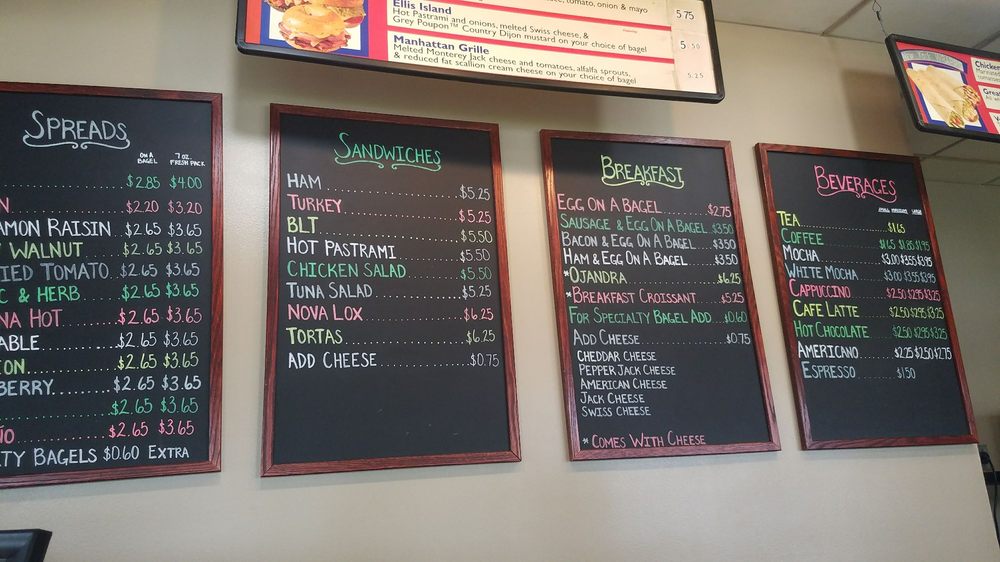 tomato, onion & mayo 5.75
Ellis Island
Hot Pastrami and onions, melted Swiss cheese, &
Grey Poupon™ Country Dijon mustard on your choice of bagel 5.50
Manhattan Grille
Melted Monterey Jack cheese and tomatoes, alfalfa sprouts,
& reduced fat scallion cream cheese on your choice of bagel 5.25
SPREADS
ON A BAGEL 7 OZ. FRESH PACK
$2.85 $4.00
N $2.20 $3.20
AMON RAISIN $2.65 $3.65
WALNUT $2.65 $3.65
IED TOMATO $2.65 $3.65
C & HERB $2.65 $3.65
NA HOT $2.65 $3.65
ABLE $2.65 $3.65
ION $2.65 $3.65
BERRY $2.65 $3.65
$2.65 $3.65
ÑO $2.65 $3.65
TY BAGELS $0.60 EXTRA
SANDWICHES
HAM $5.25
TURKEY $5.25
BLT $5.50
HOT PASTRAMI $5.50
CHICKEN SALAD $5.50
TUNA SALAD $5.25
NOVA LOX $6.25
TORTAS $6.25
ADD CHEESE $0.75
BREAKFAST
EGG ON A BAGEL $2.75
SAUSAGE & EGG ON A BAGEL $3.50
BACON & EGG ON A BAGEL $3.50
HAM & EGG ON A BAGEL $3.50
*OJANDRA $6.25
*BREAKFAST CROISSANT $5.25
FOR SPECIALTY BAGEL ADD $0.60
ADD CHEESE $0.75
CHEDDAR CHEESE
PEPPER JACK CHEESE
AMERICAN CHEESE
JACK CHEESE
SWISS CHEESE
* COMES WITH CHEESE
BEVERAGES
SMALL MEDIUM LARGE
TEA $1.65
COFFEE $1.65 $1.85 $1.95
MOCHA $3.00 $3.55 $3.95
WHITE MOCHA $3.00 $3.55 $3.95
CAPPUCCINO $2.50 $2.95 $3.25
CAFE LATTE $2.50 $2.95 $3.25
HOT CHOCOLATE $2.50 $2.95 $3.25
AMERICANO $2.25 $2.50 $2.75
ESPRESSO $1.50
Chicken
Grea